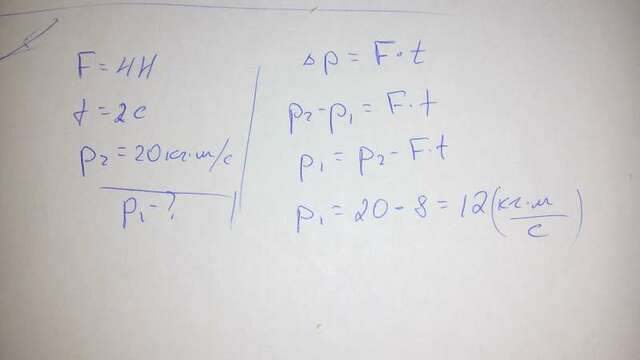 F = 4Н
t = 2с
p₂ = 20 кг·м/с
p₁ - ?
Δp = F·t
p₂ - p₁ = F·t
p₁ = p₂ - F·t
p₁ = 20 - 8 = 12 (кг·м/с)